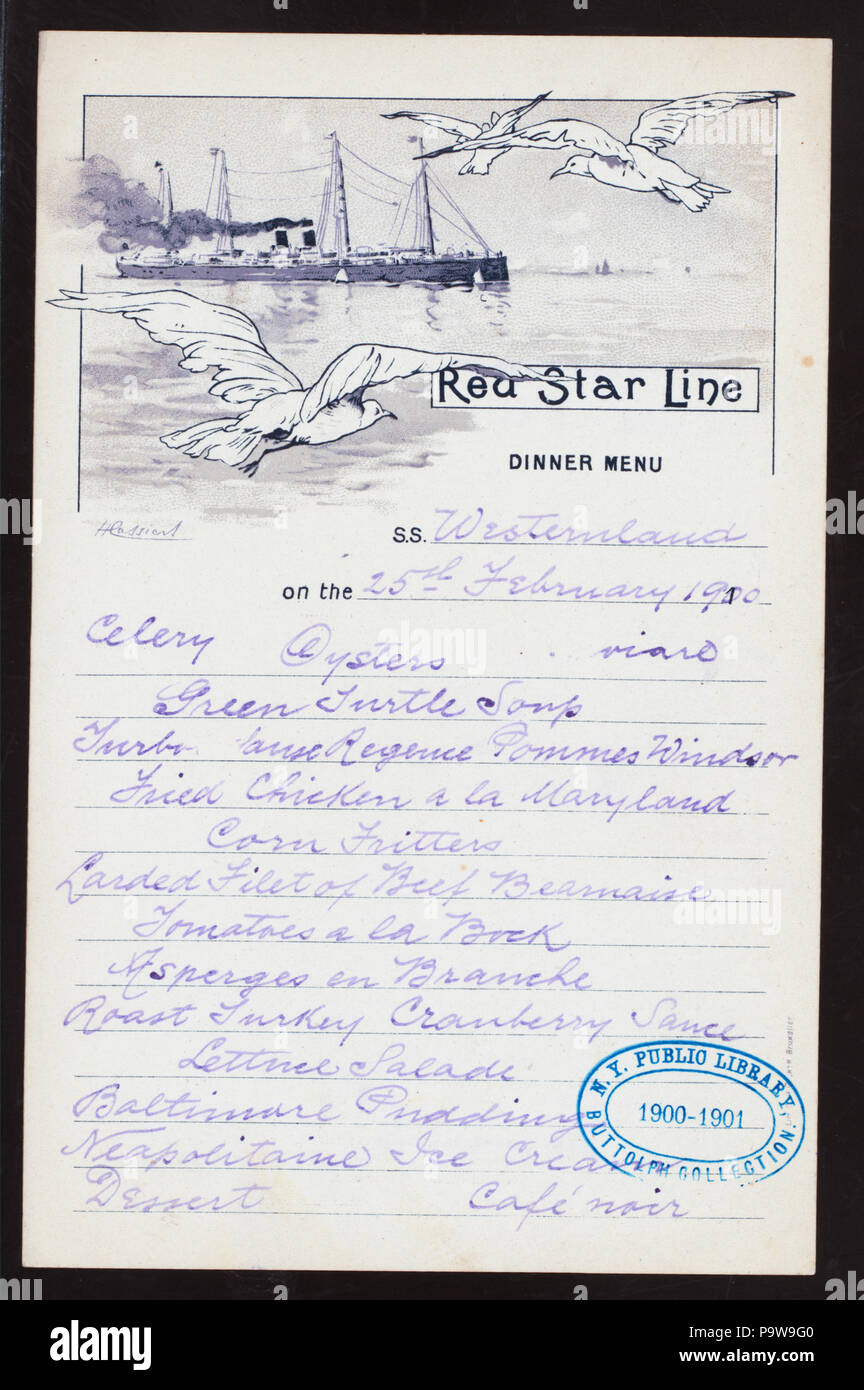 Red Star Line
DINNER MENU
HCassiers
S.S. Westernland
on the 25th February 1900
Celery Oysters
Green Turtle Soup
Regence Pommes Windsor
Fried Chicken a la Maryland
Corn Fritters
Larded Filet of Beef Bearnaise
Tomatoes a la Bock
Asperges en Branche
Roast Turkey Cranberry Sauce
Lettuce Salade
Baltimore Pudding
Neapolitaine Ice Cream
Dessert Café noir
N.Y. PUBLIC LIBRARY
1900-1901
BUTTOLPH COLLECTION
alamy
alamy
alamy
Image ID: P9W9G0
www.alamy.com